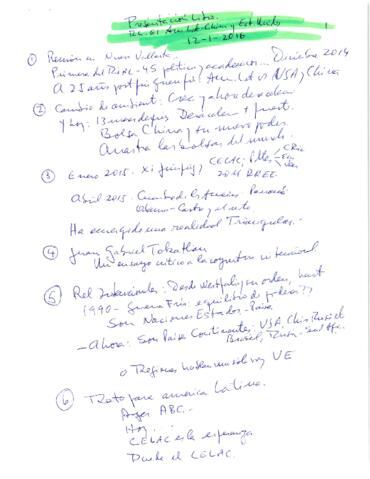 Presentación Libro.
Rel. entre Am. Lat. China y Est. Unidos
12-1-2016
1
① Reunión en Nueva
Primera del RIAL - 45 políticos y academicos... Diciembre 2014
A 25 años post guerra fría: Am. Lat. vs USA y China
② Cambio de ambiente: Crece y ahora desaceleran
Y hoy: 13 meses despues Desaceleran + fuerte.
Bolsa China y su nuevo poder.
Arrastra las bolsas del mundo.
③ Enero 2015. Xi Jinping; CELAC;
2015 RREE.
Abril 2015. Cumbre de las Américas Panamá
Obama - Castro y el resto
Ha emergido una realidad Triangular.-
④ Juan Gabriel Tokatlian
Un ensayo crítico a la
⑤ Rel Internacionales: Desde Westfalia, un orden, hasta
1990 - Guerra Fría: equilibrio de poderes??
Son Naciones Estados - Países
- Ahora: Son Países Continentes: USA, China, India
Brasil, Rusia - Sud Af.
o Regiones hablan una sola voz UE
⑥ Trato para america Latina.
Ayer ABC.-
Hoy.-
CELAC es la esperanza
Desde el CELAC.